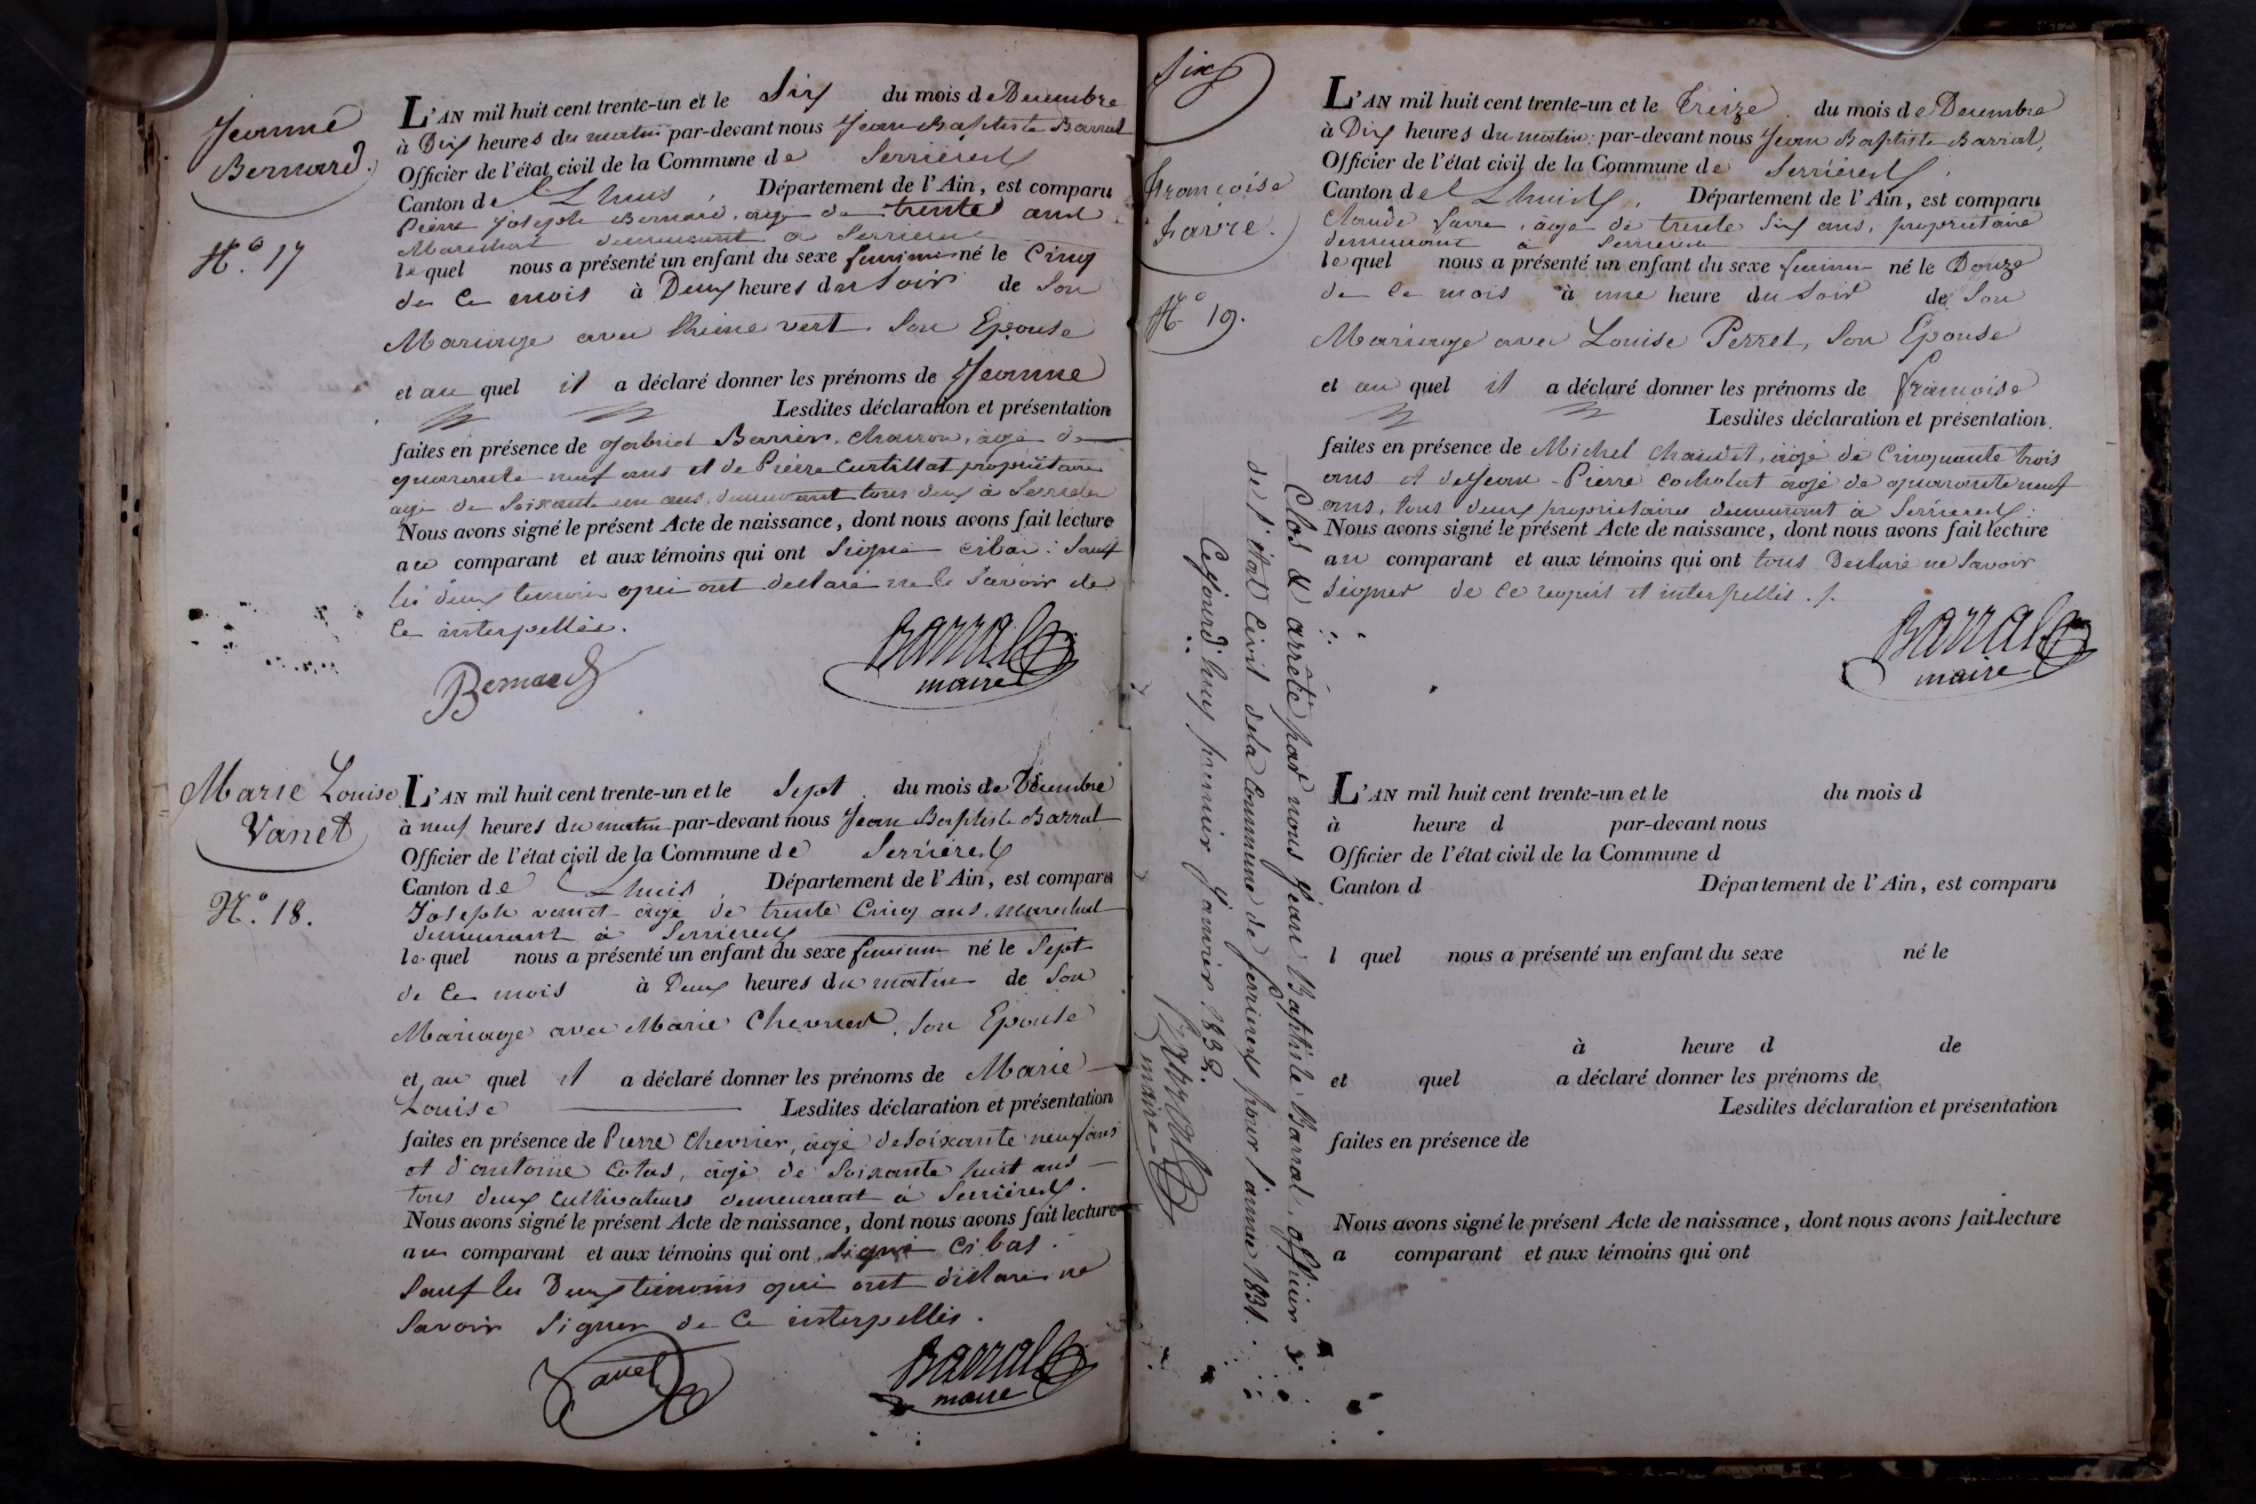 Jeanne
Bernard.
N.º 17
L'AN mil huit cent trente-un et le Six du mois de Decembre
à Dix heures du matin par-devant nous Jean Baptiste Barral
Officier de l'état civil de la Commune de Serrieres
Canton de Lhuis, Département de l'Ain, est comparu
Pierre Joseph Bernard, age de trente ans
Marechal demeurant a Serrieres
lequel nous a présenté un enfant du sexe feminin né le Cinq
de Ce mois à Deux heures du Soir de Son
Mariage avec vert. Son Epouse
et au quel il a déclaré donner les prénoms de Jeanne
Lesdites déclaration et présentation
faites en présence de gabriel Barrier, charron, agé de
quarante neuf ans et de Pierre Curtillat propriétaire
agé de Soixante un ans, demeurant tous deux à Serrieres
Nous avons signé le présent Acte de naissance, dont nous avons fait lecture
au comparant et aux témoins qui ont Signé cibas : Sauf
les deux temoins qui ont declaré ne le Savoir de
Ce interpellés.
Bernard
Barral
maire
Marie Louise
Vanet
N.º 18.
L'AN mil huit cent trente-un et le Sept du mois de Decembre
à neuf heures du matin par-devant nous Jean Baptiste Barral
Officier de l'état civil de la Commune de Serrieres
Canton de Lhuis, Département de l'Ain, est comparu
Joseph vanet agé de trente Cinq ans, marechal
demeurant à Serrieres
lequel nous a présenté un enfant du sexe feminin né le Sept
de Ce mois à Deux heures du matin de Son
Mariage avec Marie Chevrier, Son Epouse
et au quel il a déclaré donner les prénoms de Marie
Louise Lesdites déclaration et présentation
faites en présence de Pierre Chevrier, agé de soixante neuf ans
et d'antoine Cotas, agé de Soixante huit ans
tous deux cultivateurs demeurant à Serrieres.
Nous avons signé le présent Acte de naissance, dont nous avons fait lecture
au comparant et aux témoins qui ont Signé Ci bas
Sauf les Deux témoins qui ont déclaré ne
Savoir Signer de Ce interpellés.
Vanet
Barral
maire
Six
Françoise
Favre.
Nº 19.
L'AN mil huit cent trente-un et le Treize du mois de Decembre
à Dix heures du matin par-devant nous Jean Baptiste Barral,
Officier de l'état civil de la Commune de Serrieres
Canton de Lhuis, Département de l'Ain, est comparu
Claude favre, agé de trente Six ans, propriétaire
demeurant à Serrieres
lequel nous a présenté un enfant du sexe feminin né le Douze
de Ce mois à une heure du Soir de Son
Mariage avec Louise Perret, Son Epouse
et au quel il a déclaré donner les prénoms de françoise
Lesdites déclaration et présentation
faites en présence de Michel Chaudet, agé de Cinquante trois
ans et de Jean-Pierre Cocholat agé de quarante neuf
ans, tous deux proprietaires demeurant à Serrieres.
Nous avons signé le présent Acte de naissance, dont nous avons fait lecture
au comparant et aux témoins qui ont tous Declaré ne Savoir
Signer de Ce requis et interpellés ./.
Barral
maire
Clos et arrêté par nous Jean Baptiste Barral, officier
de l'état Civil de la Commune de serrieres pour l'année 1831.
Cejourd'huy premier Janvier 1832.
Barral
maire
L'AN mil huit cent trente-un et le du mois d
à heure d par-devant nous
Officier de l'état civil de la Commune d
Canton d Département de l'Ain, est comparu
l quel nous a présenté un enfant du sexe né le
à heure d de
et quel a déclaré donner les prénoms de
Lesdites déclaration et présentation
faites en présence de
Nous avons signé le présent Acte de naissance, dont nous avons fait lecture
a comparant et aux témoins qui ont